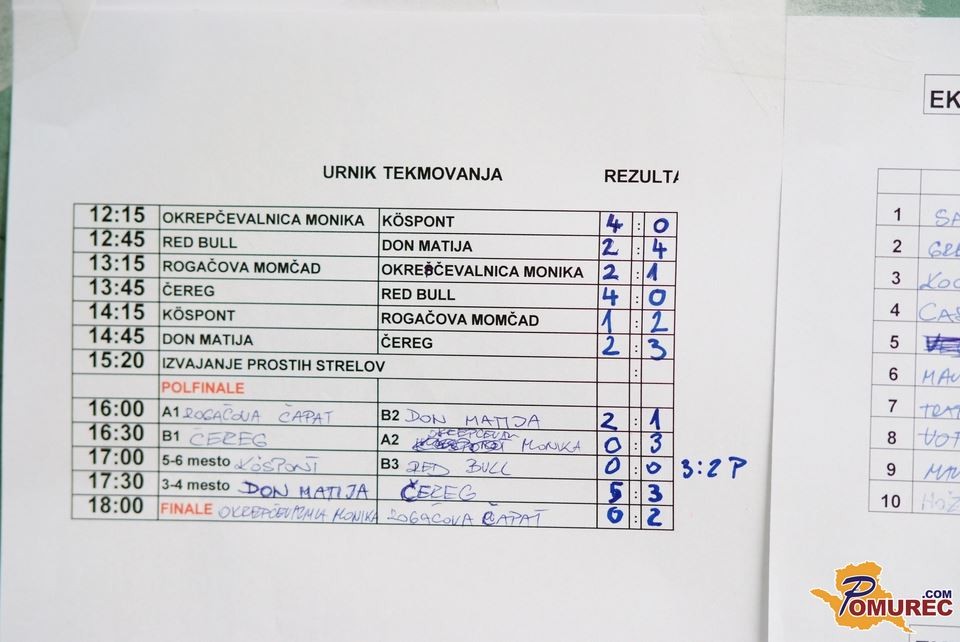 URNIK TEKMOVANJA REZULTA
12:15 OKREPČEVALNICA MONIKA KÖSPONT 4 : 0
12:45 RED BULL DON MATIJA 2 : 4
13:15 ROGAČOVA MOMČAD OKREPČEVALNICA MONIKA 2 : 1
13:45 ČEREG RED BULL 4 : 0
14:15 KÖSPONT ROGAČOVA MOMČAD 1 : 2
14:45 DON MATIJA ČEREG 2 : 3
15:20 IZVAJANJE PROSTIH STRELOV :
POLFINALE
16:00 A1 ROGAČOVA ČAPAT B2 DON MATIJA 2 : 1
16:30 B1 ČEREG A2 MONIKA 0 : 3
17:00 5-6 mesto KÖSPONT B3 RED BULL 0 : 0 3:2 P
17:30 3-4 mesto DON MATIJA ČEREG 5 : 3
18:00 FINALE MONIKA ROGAČOVA ČAPAT 0 : 2
EK
1
2
3
4
5
6
7
8
9
10
POMUREC.COM